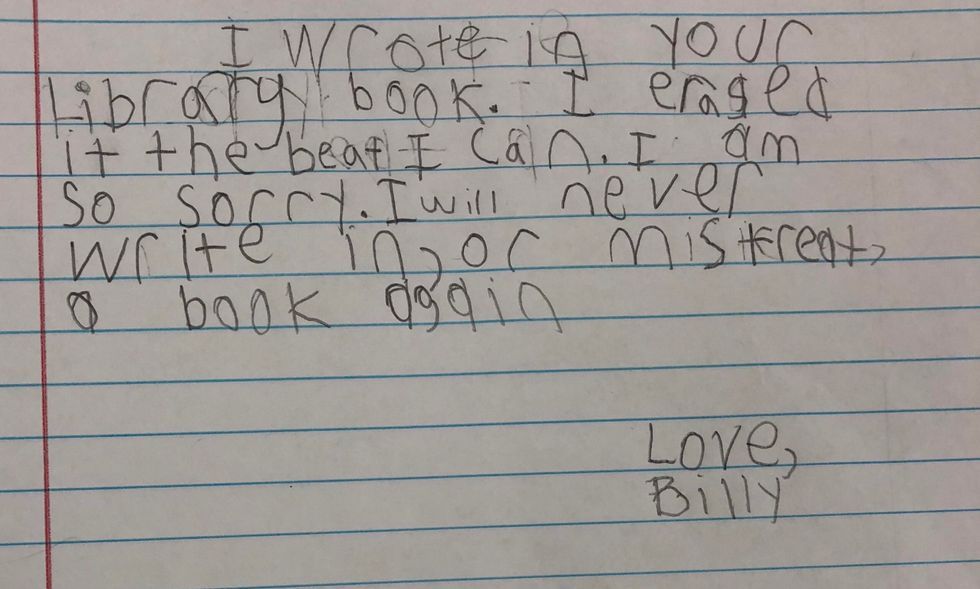 I wrote in your
Library book. I erased
it the best I can. I am
so sorry. I will never
write in, or mistreat,
a book again
Love,
Billy